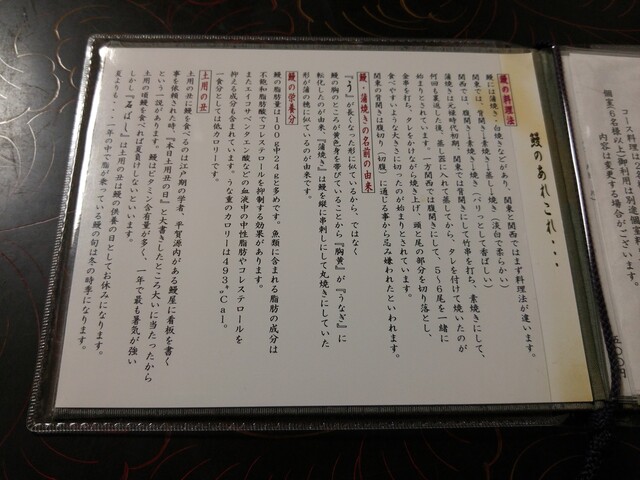 コース料理は
個室6名様以上御利用は別途個室
内容は変更する場合がござい
五〇〇円
鰻のあれこれ・・・
鰻の料理法
鰻には蒲焼き・白焼きなどがあり、関東と関西ではまず料理法が違います。
関東では、背開き→素焼き→蒸し→焼き（淡白で柔らかい）
関西では、腹開き→素焼き→焼き（パリっとして香ばしい）
蒲焼きは元禄時代初期、関東で背開きにして竹串を打ち、素焼きにして、
何回も素焼した後、蒸し器に入れて蒸してから、タレを付けて焼いたのが
始まりとされています。一方関西では腹開きにして、5～6尾を一緒に
金串を打ち、タレをかけながら焼き上げ、頭と尾の部分を切り落とし、
食べやすいような大きさに切ったのが始まりとされています。
関東の背開きは腹切り（切腹）に通じる事から忌み嫌われたといわれます。
鰻・蒲焼きの名前の由来
『う』が長くなった形に似ているから、ではなく
鰻の胸のところが黄色身を帯びていることから『胸黄』が『うなぎ』に
転化したのが由来、『蒲焼き』は鰻を縦に串刺しにして丸焼きにしていた
形が蒲の穂に似ているのが由来です。
鰻の栄養分
鰻の脂肪量は100g中24gと多めです。魚類に含まれる脂肪の成分は
不飽和脂肪酸でコレステロールを抑制する効果があります。
またエイコサペンタエン酸などの血液中の中性脂肪やコレステロールを
抑える成分も含まれています。うな重のカロリーは493㌔Cal。
一食分としては低カロリーです。
土用の丑
土用の丑に鰻を食べるのは江戸期の学者、平賀源内がある鰻屋に看板を書く
事を依頼された時、『本日土用丑の日』と大書きしたところ大いに当たったから
という一説があります。鰻はビタミン含有量が多く、一年で最も暑気が強い
土用の頃鰻を食べれば夏負けしないといいます。
しかし『石ばし』は土用の丑は鰻の供養の日としてお休みになります。
夏よりも・・・一年の中で脂が乗っている鰻の旬は冬の時季になります。